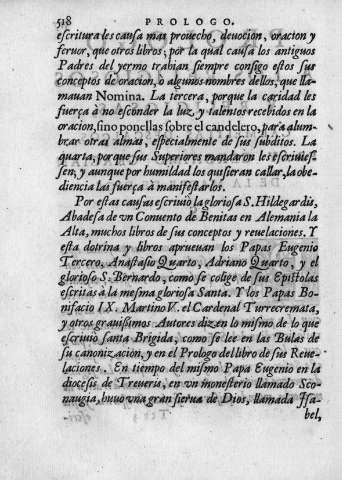 518 PROLOGO.
escritura les causa mas prouecho, deuocion, oracion y
feruor, que otros libros; por la qual causa los antiguos
Padres del yermo trahian siempre consigo estos sus
conceptos de oracion, o algunos nombres dellos, que lla-
mauan Nomina. La tercera, porque la caridad les
fuerça à no esconder la luz, y talentos recebidos en la
oracion, sino ponellas sobre el candelero, para alum-
brar otras almas, especialmente de sus subditos. La
quarta, porque sus Superiores mandaron les escriuies-
sen, y aunque por humildad los quisieran callar, la obe-
diencia las fuerça à manifestarlos.
Por estas causas escriuio la gloriosa S. Hildegardis,
Abadesa de vn Conuento de Benitas en Alemania la
Alta, muchos libros de sus conceptos y reuelaciones. Y
esta dotrina y libros aprueuan los Papas Eugenio
Tercero, Anastasio Quarto, Adriano Quarto, y el
glorioso S. Bernardo, como se colige de sus Epistolas
escritas à la mesma gloriosa Santa. Y los Papas Bo-
nifacio IX. Martino V. el Cardenal Turrecremata,
y otros grauissimos Autores dizen lo mismo de lo que
escriuio santa Brigida, como se lee en las Bulas de
su canonizacion, y en el Prologo del libro de sus Reue-
laciones. En tiempo del mismo Papa Eugenio en la
diocesis de Treueris, en vn monesterio llamado Sco-
naugia, huuo vna gran sierua de Dios, llamada Isa-
bel,